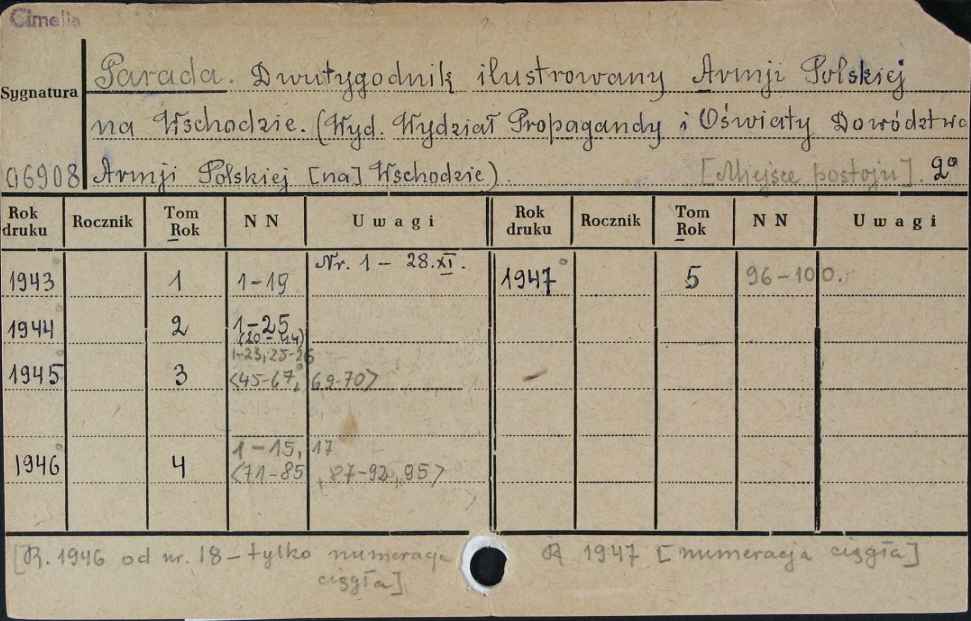 Cimelia
Parada. Dwutygodnik ilustrowany Armji Polskiej
Sygnatura
na Wschodzie. (Wyd. Wydział Propagandy i Oświaty Dowództwa
06908 Armji Polskiej [na] Wschodzie). [Miejsce postoju]. 2°
Rok druku Rocznik Tom Rok N N Uwagi Rok druku Rocznik Tom Rok N N Uwagi
1943 1 1-19 Nr. 1 - 28.XI. 1947 5 96-100.
1944 2 1-25
(20-44)
1-23, 25-26
1945 3 <45-67, 69-70>
1-15, 17
1946 4 <71-85, 87-92, 95>
[R. 1946 od nr. 18 - tylko numeracja R 1947 [numeracja ciągła]
ciągła]